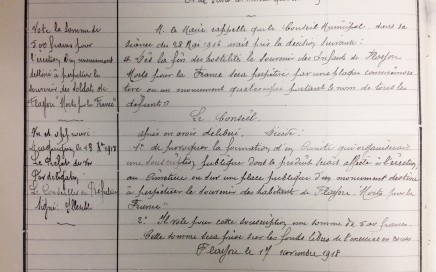 Vote de Somme de
500 francs pour
l'érection d'un monument
destiné à perpétuer le
souvenir des soldats de
Flayosc "Morts pour la France"
Vu et approuvé
Draguignan, le 18 Xbre 1918
Le Préfet du Var
Par délégation
Le Conseiller de Préfecture
Signé:
M. le Maire rappelle que le Conseil Municipal dans sa
séance du 28 Mai 1916 avait pris la décision suivante:
« Dès la fin des hostilités le souvenir des Enfants de Flayosc
Morts pour la France sera perpétué par une plaque commémora-
tive ou un monument quelconque portant le nom de tous les
défunts »
Le Conseil
après en avoir délibéré, Décide:
1° de provoquer la formation d'un Comité qui organiserait
une souscription publique dont le produit serait affecté à l'érection
au Cimetière ou sur une place publique d'un monument destiné
à perpétuer le souvenir des habitants de Flayosc "Morts pour la
France"
2° Il vote pour cette souscription une somme de 500 francs
Cette somme sera prise sur les fonds libres de l'exercice en cours
Flayosc le 17 novembre 1918